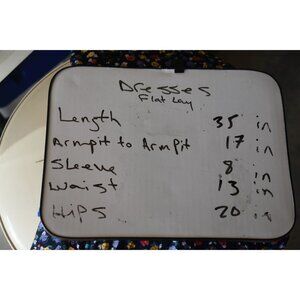 Dresses
Flat Lay
Length 35 in
Armpit to Armpit 17 in
Sleeve 8 in
Waist 13 in
Hips 20 in